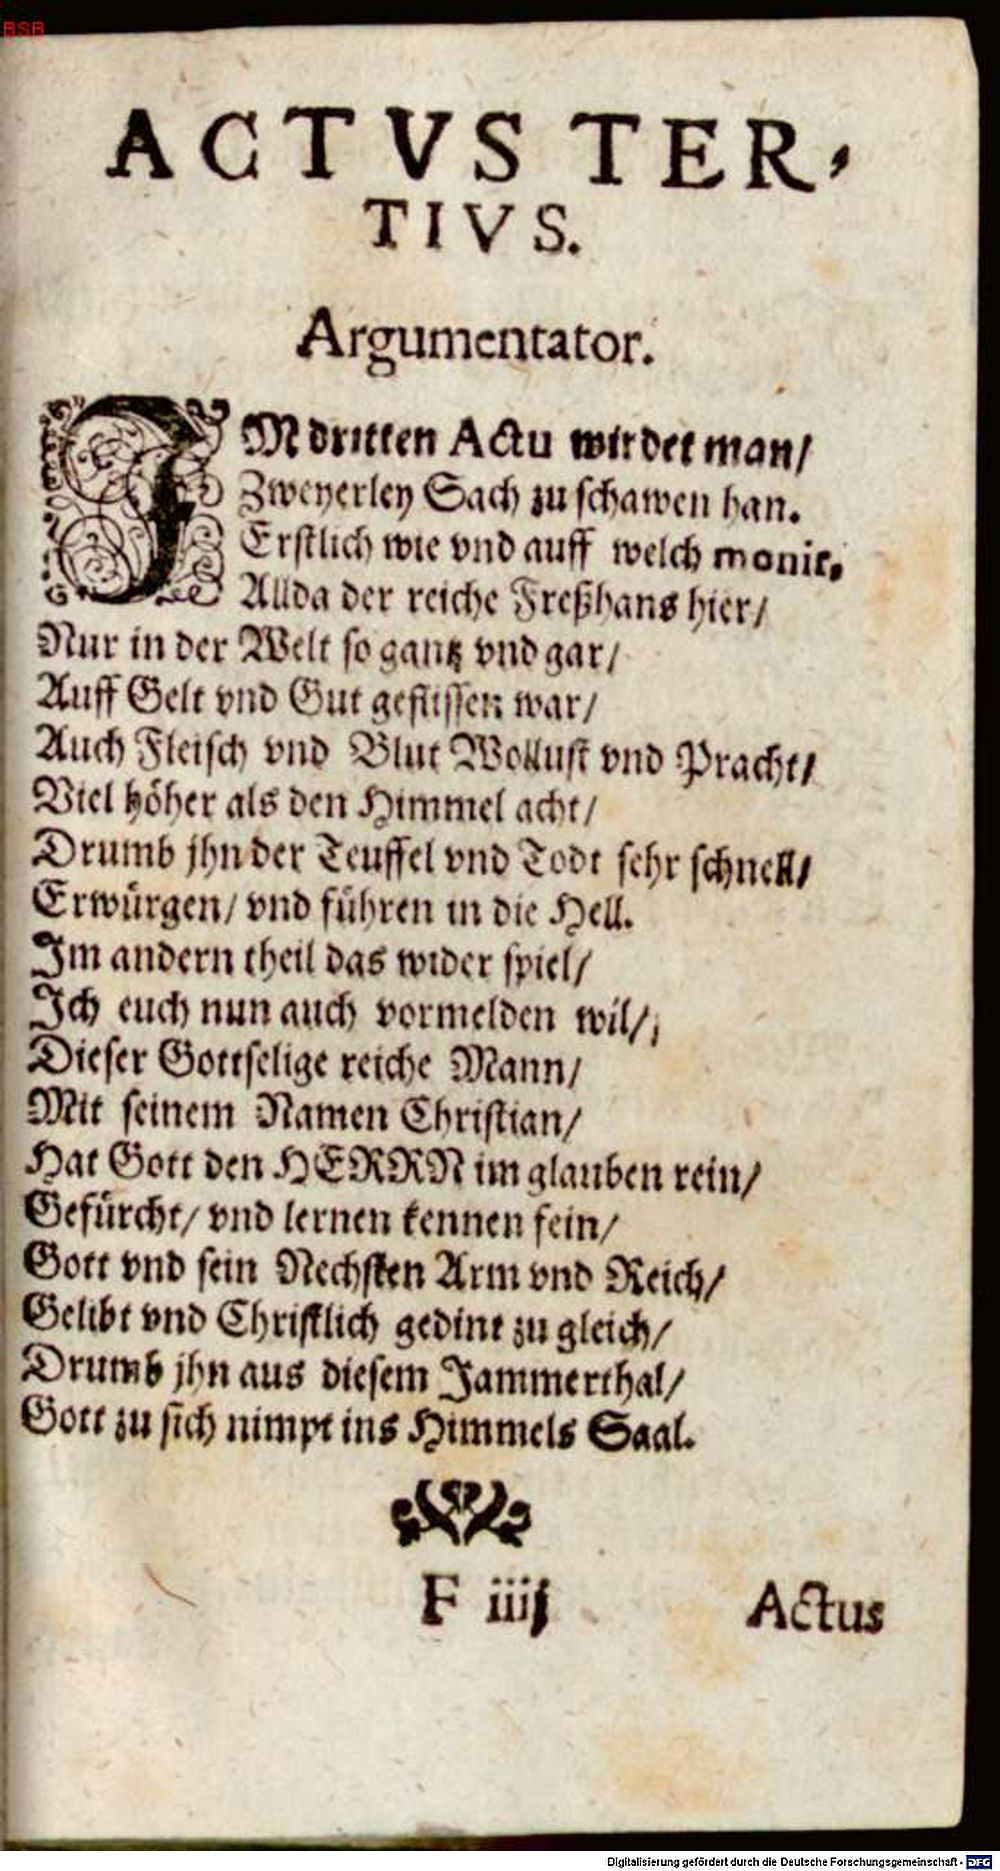 BSB
ACTVS TER,
TIVS.
Argumentator.
IM dritten Actu wirdet man/
Zweyerley Sach zu schawen han.
Erstlich wie vnd auff welch monir,
Allda der reiche Freßhans hier/
Nur in der Welt so gantz vnd gar/
Auff Gelt vnd Gut geflissen war/
Auch Fleisch vnd Blut Wollust vnd Pracht/
Viel höher als den Himmel acht/
Drumb jhn der Teuffel vnd Todt sehr schnell/
Erwürgen/ vnd führen in die Hell.
Im andern theil das wider spiel/
Ich euch nun auch vormelden wil/
Dieser Gottselige reiche Mann/
Mit seinem Namen Christian/
Hat Gott den HERRN im glauben rein/
Gefürcht/ vnd lernen kennen fein/
Gott vnd sein Nechsten Arm vnd Reich/
Gelibt vnd Christlich gedint zu gleich/
Drumb jhn aus diesem Jammerthal/
Gott zu sich nimpt ins Himmels Saal.
F iiij
Actus
Digitalisierung gefördert durch die Deutsche Forschungsgemeinschaft - DFG